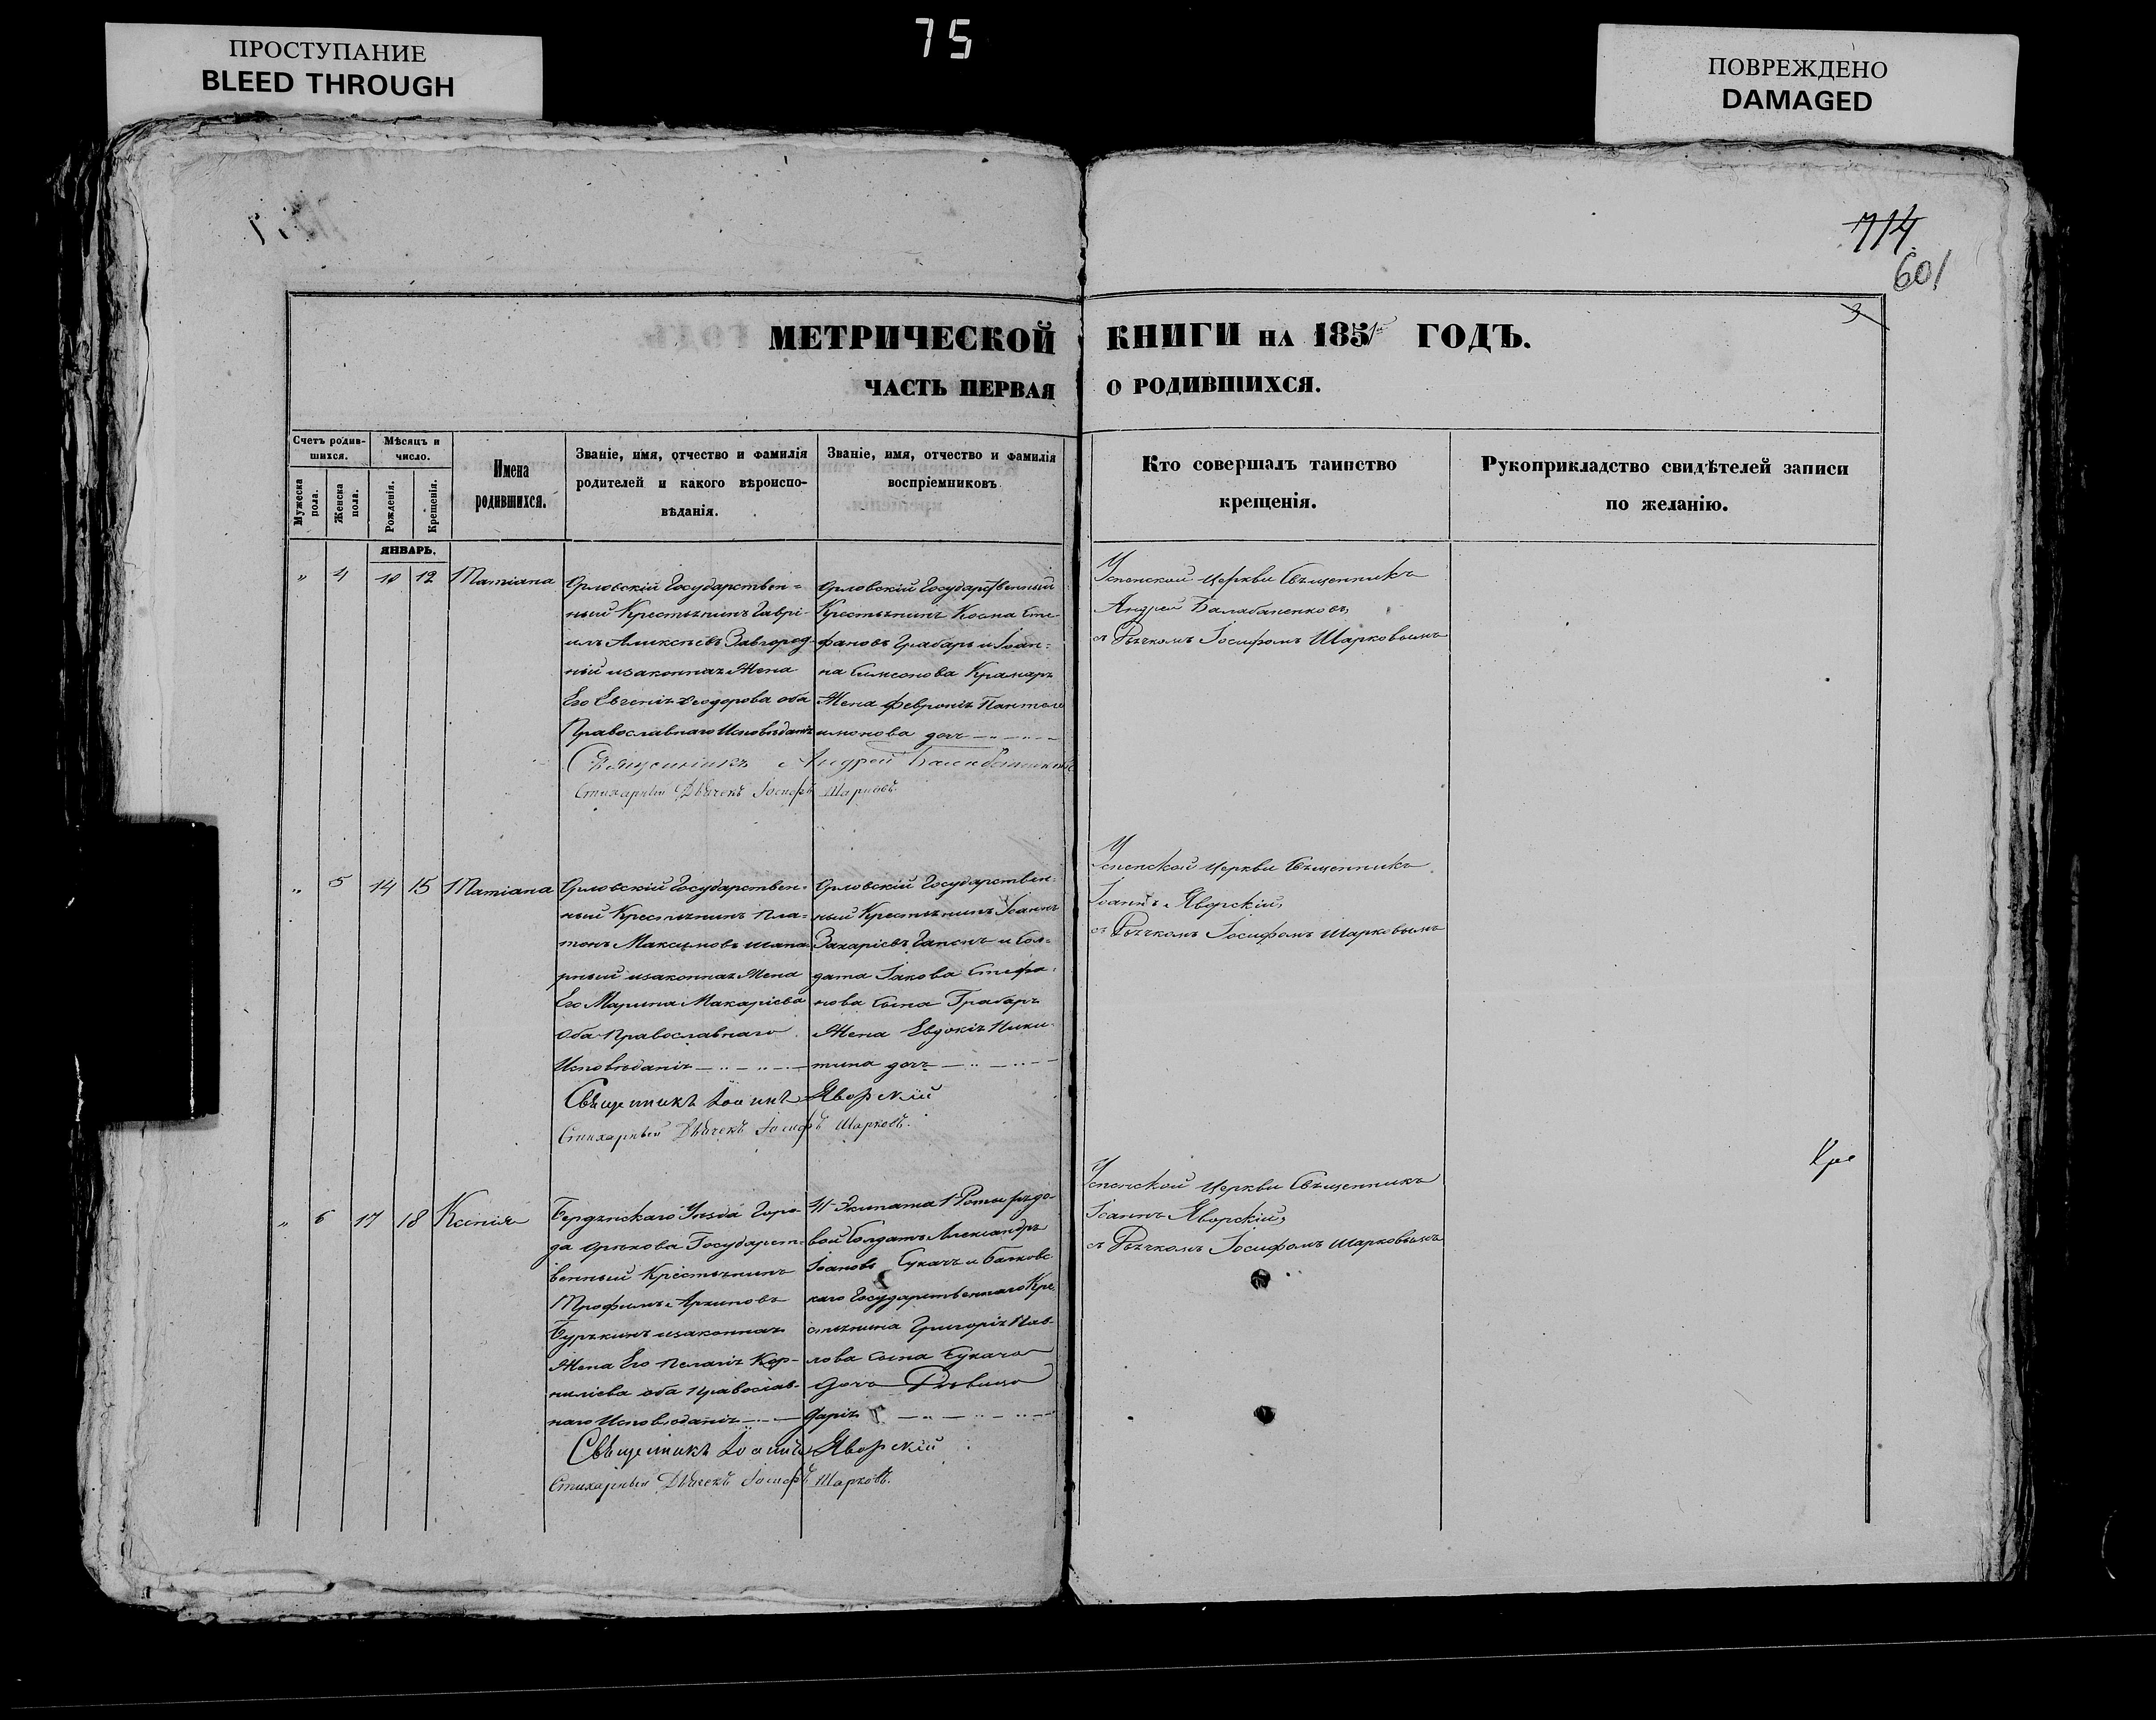 ПРОСТУПАНИЕ
BLEED THROUGH
75
ПОВРЕЖДЕНО
DAMAGED
714
601
3
МЕТРИЧЕСКОЙ КНИГИ НА 1851 ГОДЪ.
ЧАСТЬ ПЕРВАЯ О РОДИВШИХСЯ.
Счетъ родив-
шихся.
Мужеска пола.
Женска пола.
Мѣсяцъ и
число.
Рожденія.
Крещенія.
Имена
родившихся.
Званіе, имя, отчество и фамилія
родителей и какого вѣроиспо-
вѣданія.
Званіе, имя, отчество и фамилія
воспріемниковъ
Кто совершалъ таинство
крещенія.
Рукоприкладство свидѣтелей записи
по желанію.
ЯНВАРЬ.
„ 4 10 12 Татіана
Орловскій Государствен=
ный Крестьянинъ Гаврі-
илъ Алексѣевъ Завгород-
ній изаконная Жена
Его Евгенія Ѳеодорова оба
Православнаго Исповѣданія
Орловскій Государственный
Крестьянинъ Косма Сте-
фановъ Грабарь и Іоан-
на Симеонова Крамаря
Жена Февронія Пантеле
имонова дочь
Священникъ Андрей Балабаненковъ
Стихарный Дьячекъ Іосифъ Шарковъ.
Успенской Церкви Священникъ
Андрей Балабаненковъ,
съ Дьячкомъ Іосифомъ Шарковымъ
„ 5 14 15 Татіана
Орловскій Государствен-
ный Крестьянинъ Пла-
тонъ Максимовъ
изаконная Жена
Его Марина Макаріева
Оба Православнаго
Исповѣданія
Орловскій Государствен-
ный Крестьянинъ Іоаннъ
Захаріевъ Гапонъ и Сол-
дата Іакова Стефа-
нова сына Грабаря
Жена Евдокія Ники-
тина дочь
Священникъ Іоаннъ Яворскій
Стихарный Дьячекъ Іосифъ Шарковъ.
Успенской Церкви Священникъ
Іоаннъ Яворскій,
съ Дьячкомъ Іосифомъ Шарковымъ
„ 6 17 18 Ксенія
Бердянскаго Уѣзда Горо-
да Орѣхова Государст-
венный Крестьянинъ
Трофимъ Архиповъ
Бурякинъ изаконная
Жена Его Пелагія Кор-
ниліева оба Православ-
наго Исповѣданія
Экипажа 1 Роты рядо-
вой Солдатъ Александръ
Іоановъ Сукачъ и
каго Государственнаго Кре
стьянина Григорія Пав-
лова сына Сукача
дочь Дѣвица
Дарія
Священникъ Іоаннъ Яворскій
Стихарный Дьячекъ Іосифъ Шарковъ.
Успенской Церкви Священникъ
Іоаннъ Яворскій,
съ Дьячкомъ Іосифомъ Шарковымъ
Кре